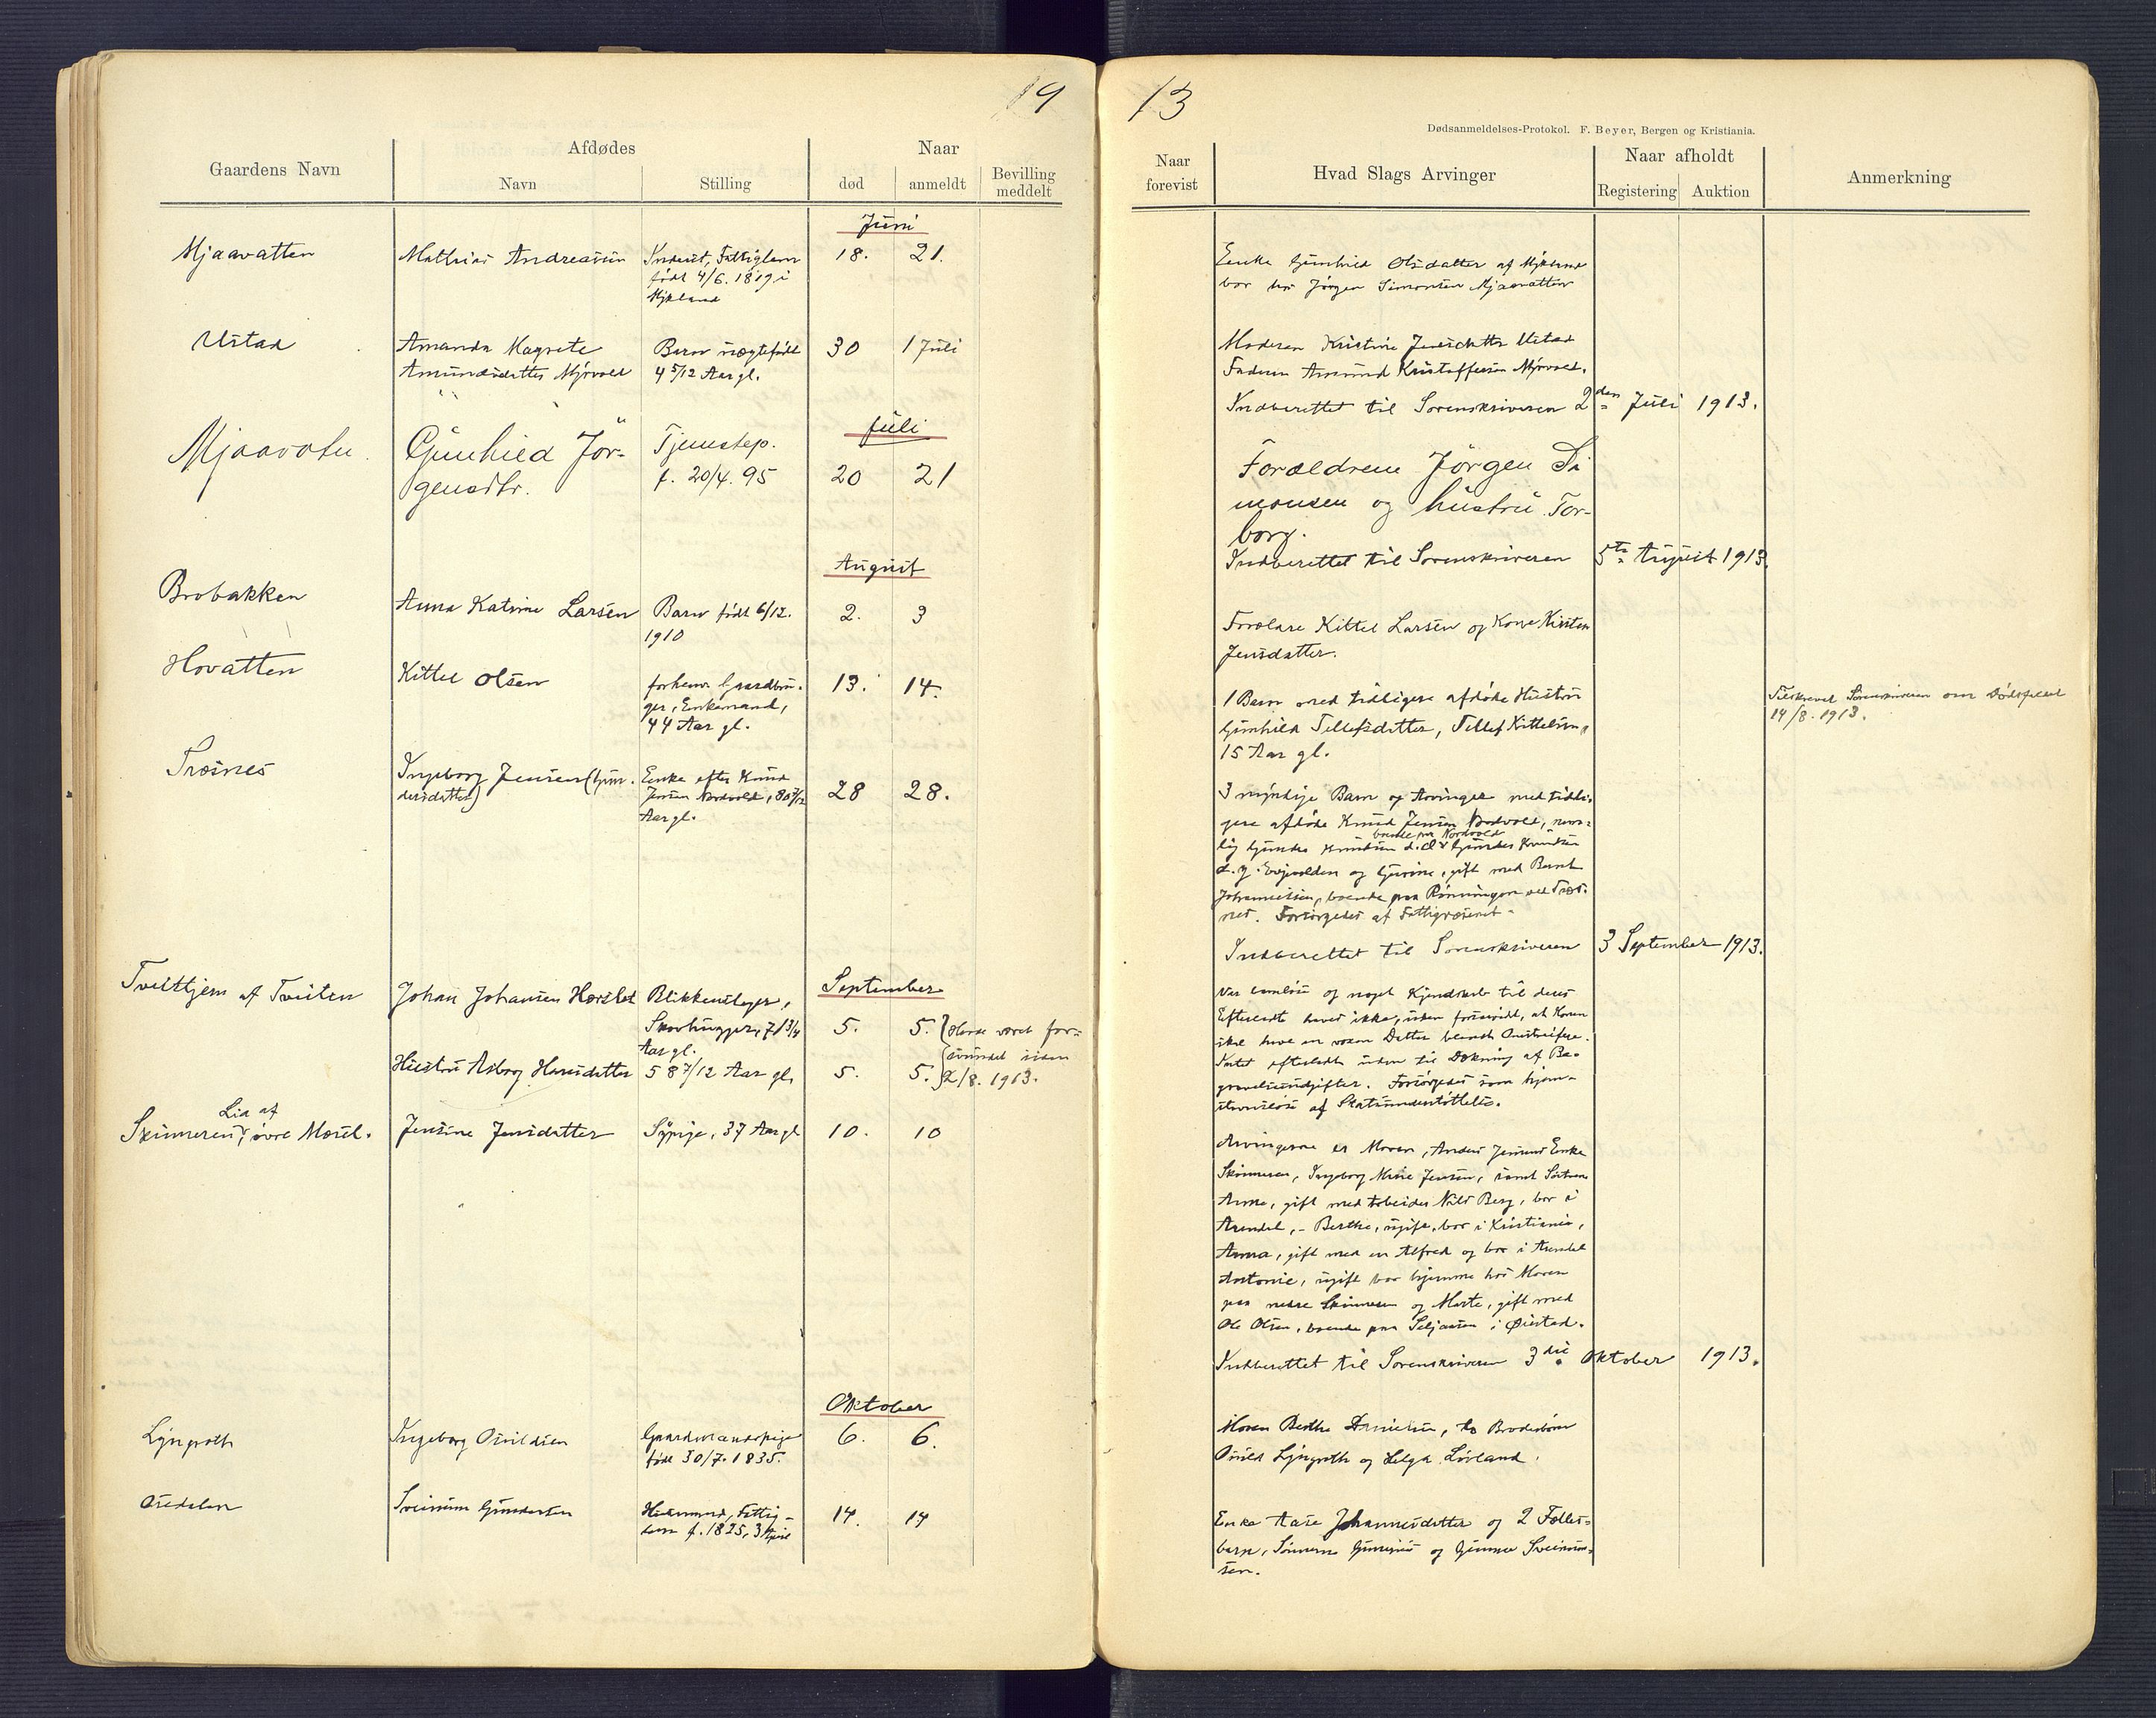 19
13
Dødsanmeldelses-Protokol. F. Beyer, Bergen og Kristiania.
Gaardens Navn
Afdødes
Navn
Stilling
Naar
død
anmeldt
Bevilling
meddelt
Naar
forevist
Hvad Slags Arvinger
Naar afholdt
Registering
Auktion
Anmerkning
Juni
Mjaavatten
Mathias Andreassen
Inderst, Fattiglem
født 4/6. 1819 i
Mykland
18.
21.
Enke Gunhild Olsdatter af Mykland
bor hos Jørgen Simonsen Mjaavatten
Ustad
Amanda Magrete
Amundsdatter Myrvold
Barn uægtefødt
4 5/12 Aar gl.
30
1 Juli
Moderen Kristine Jensdatter Ustad
Faderen Amund Kristoffersen Myrvold.
Indberettet til Sorenskriveren 2den Juli 1913.
Juli
Mjaavatn
Gunhild Jør-
gensdtr.
Tjenstep.
f. 20/4. 95
20
21
Forældrene Jørgen Si
monsen og hustru Tor-
borg.
Indberettet til Sorenskriveren 5te August 1913.
August
Brobakken
Anna Katrine Larsen
Barn født 6/12.
1910
2.
3
Forældre Kittel Larsen og Kone Kirsten
Jensdatter.
Hovatten
Kittel Olsen
forhenv. Gaardbru-
ger, Enkemand,
44 Aar gl.
13.
14.
1 Barn med tidligere afdøde Hustru
Gunhild Tellefsdatter, Tellef Kittelsen,
15 Aar gl.
Tilskrevet Sorenskriveren om Dødsfaldet
14/8. 1913.
Træsnes
Ingeborg Jensen (Gun-
dersdatter)
Enke efter Knud
Jensen Nordvold, 80 7/12
Aar gl.
28
28.
3 myndige Barn og Arvinger med tidli-
gere afdøde Knud Jensen Nordvold, nem-
lig Gunder Knudsen d. Æ boende paa Nordvold Gunder Knudsen
d. y. Evjevolden og Gurine, gift med Bernt
Johannessen, boende paa Rønningen ved Træs-
nes. Forsørgedes af Fattigvæsenet.
Indberettet til Sorenskriveren 3 September 1913.
September
Tveittjern af Tveiten
Johan Johansen Horslet
Blikkenslager,
Skovhugger, 71 3/4
Aar gl.
5.
5.
Hustru Asborg Hansdatter
58 7/12 Aar gl.
5.
5.
Havde været for-
svundet siden
2/8. 1913.
Var barnløse og noget Kjendskab til deres
Efterladte haves ikke, uden forsaavidt, at Konen
skal have en voxen Datter blandt Omstreifere.
Intet efterladt uden til Dækning af Be-
gravelsesudgifter. Forsørgedes som hjem-
stavnsløse af Statsunderstøttelse.
Skinneren, Lia af øvre Mosel.
Jensine Jensdatter
Sypige, 37 Aar gl
10.
10
Arvingerne er Moren, Anders Jensens Enke
Skinneren, Ingeborg Marie Jensen, samt Søstrene
Anne, gift med Arbeider Nils Berg, bor i
Arendal, - Berthe, ugift, bor i Kristiania,
Anna, gift med en Alfred og bor i Arendal
Antonie, ugift bor hjemme hos Moren
paa nedre Skinneren og Marte, gift med
Ole Olsen, boende paa Seljaasen i Øiestad.
Indberettet til Sorenskriveren 3die Oktober 1913.
Oktober
Lyngroth
Ingeborg Osuldsen
Gaardmandspige
født 30/7. 1835.
6.
6.
Moren Berthe Danielsen, to Broderbørn
Osuld Lyngroth og Helga Løvland.
Osedalen
Sveinum Gundersen
Husmand, Fattig-
lem f. 1825, 3 April
14.
14
Enke Aase Johannesdatter og 2 Fælles-
barn, Sønnerne Gunsteinus og Gunnar Sveinum-
sen.